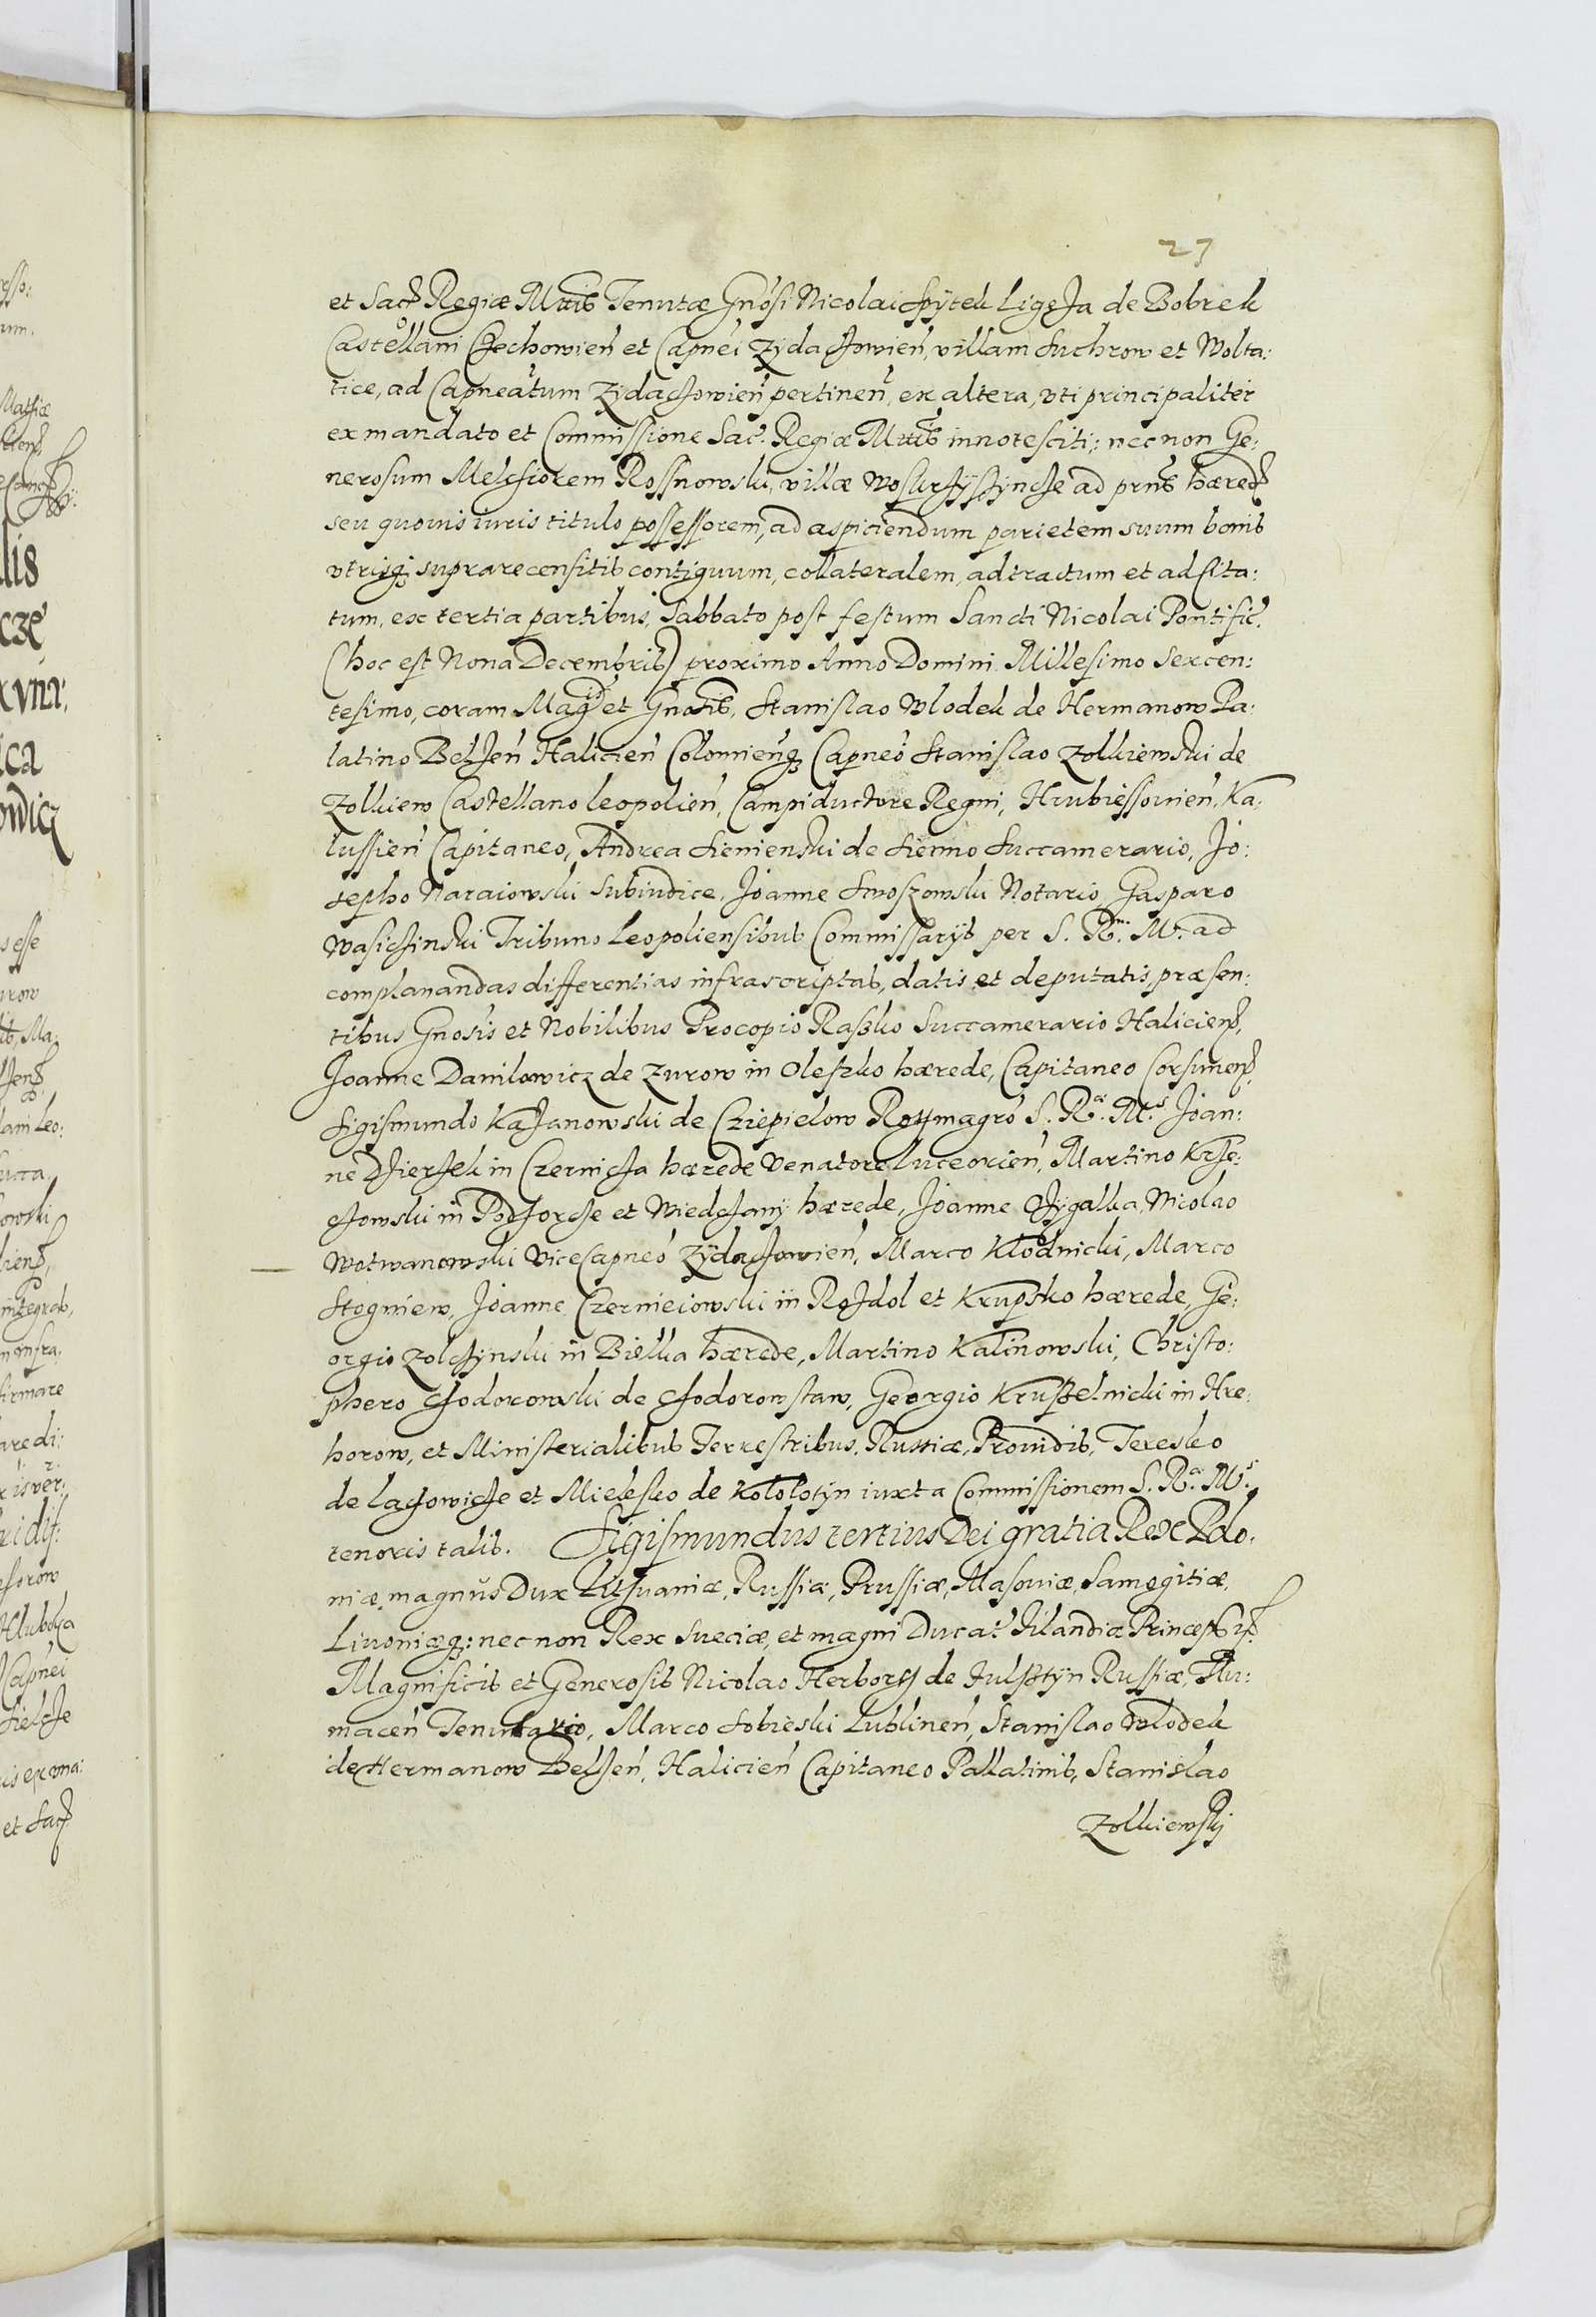 27
et Sacr. Regiæ Mttis Tenutæ Gnosi Nicolai Spÿtek Ligęza de Bobrek
Castellani Czechowień et Capnei Zydaczowień, villam Suchrow et Wolta:
tice, ad Capneatum Zydaczowień pertineń, ex altera, vti principaliter
ex mandato et Commissione Sac. Regiæ Mttis innotesciti; nec non Ge:
nerosum Melchiorem Rossnowski, villæ ad prns hæred
seu quouis iuris titulo possessorem, ad aspiciendum parietem suum bonis
vtrisq suprarecensitis contiguum, collateralem, adtractum et adcita:
tum, ex tertia partibus, Sabbato post festum Sancti Nicolai Pontific.
(hoc est Nona Decembris) proximo Anno Domini Millesimo Sexcen:
tesimo, coram Mag et Gnosis, Stanislao Wlodek de Hermanow Pa:
latino Belzeń Halicień Colomieńq Capneo Stanislao Zolkiewski de
Zolkiew Castellano Leopolień, Campiductore Regni, Hrubiessowień, Ka:
lussień Capitaneo, Andrea Sienienski de Sienno Succamerario, Jo:
sepho Naraiowski Subiudice, Joanne Swoszowski Notario, Gasparo
Wasiczinski Tribuno Leopoliensibus Commissarijs per S. Rm. Mt. ad
complanandas differentias infrascriptas, datis et deputatis, præsen:
tibus Gnosis et Nobilibus Procopio Raszko Succamerario Haliciens,
Joanne Danilowicz de Zurow in Oleszko hærede, Capitaneo Corsunens,
Sigismundo Kazanowski de Cziepielow Rottmagro S. Ra. Mts. Joan:
ne Dzierzek in Czernicza hærede Venatore Luceorień, Martino Krze:
czowski in Podhorcze et Wiedczany hærede, Joanne Nicolao
Wotwanowski ViceCapneo Zÿdaczowień, Marco Klodnicki, Marco
Stogniew, Joanne Czerneiowski in Rozdol et Krupsko hærede, Ge:
orgio Zolczynski in Bielka hærede, Martino Kalinowski, Christo:
phero Chodorowski de Chodorowstaw, Georgio Kruszelnicki in Hre:
horow, et Ministerialibus Terrestribus, Russiæ, Prouidis, Teresko
de Lachowicze et Mielesko de Kolokotÿn iuxta Commissionem S. Ra. Mts.
tenoris talis. Sigismundus tertius Dei gratia Rex Polo:
niæ, magnus Dux Lithuaniæ, Russiæ, Prussiæ, Masouiæ, Samogitiæ,
Liuoniæq: nec non Rex Sueciæ, et magni Ducat Filandiæ Princeps
Magnificis et Generosis Nicolao Herbortt de Fulsztÿn Russiæ, Thu:
maceń Tenutario, Marco Sobieski Lublineń, Stanislao Wlodek
de Hermanow Belzeń, Halicień Capitaneo Pallatinis, Stanislao
Zolkiewskj